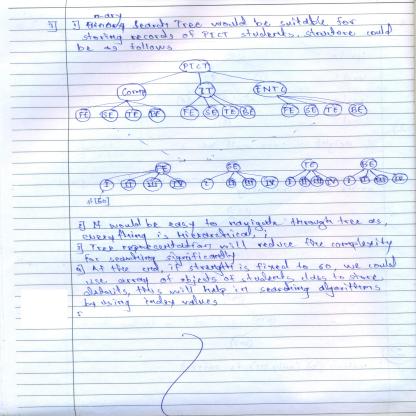 n-ary
3] 1] Binary Search Tree would be suitable for
storing records of PICT students. structure could
be as follows
PICT
Comp IT ENTC
FE SE TE BE FE SE TE BE FE SE TE BE
FE SE TE BE
I II III IV I II III IV I II III IV I II III IV
[60]
2] It would be easy to navigate through tree as,
everything is Hierarchical;
3] Tree representation will reduce the complexity
for searching significantly
4] At the end, if strength is fixed to 60, we could
use array of objects of students class to store
details, this will help in searching algorithms
by using index values